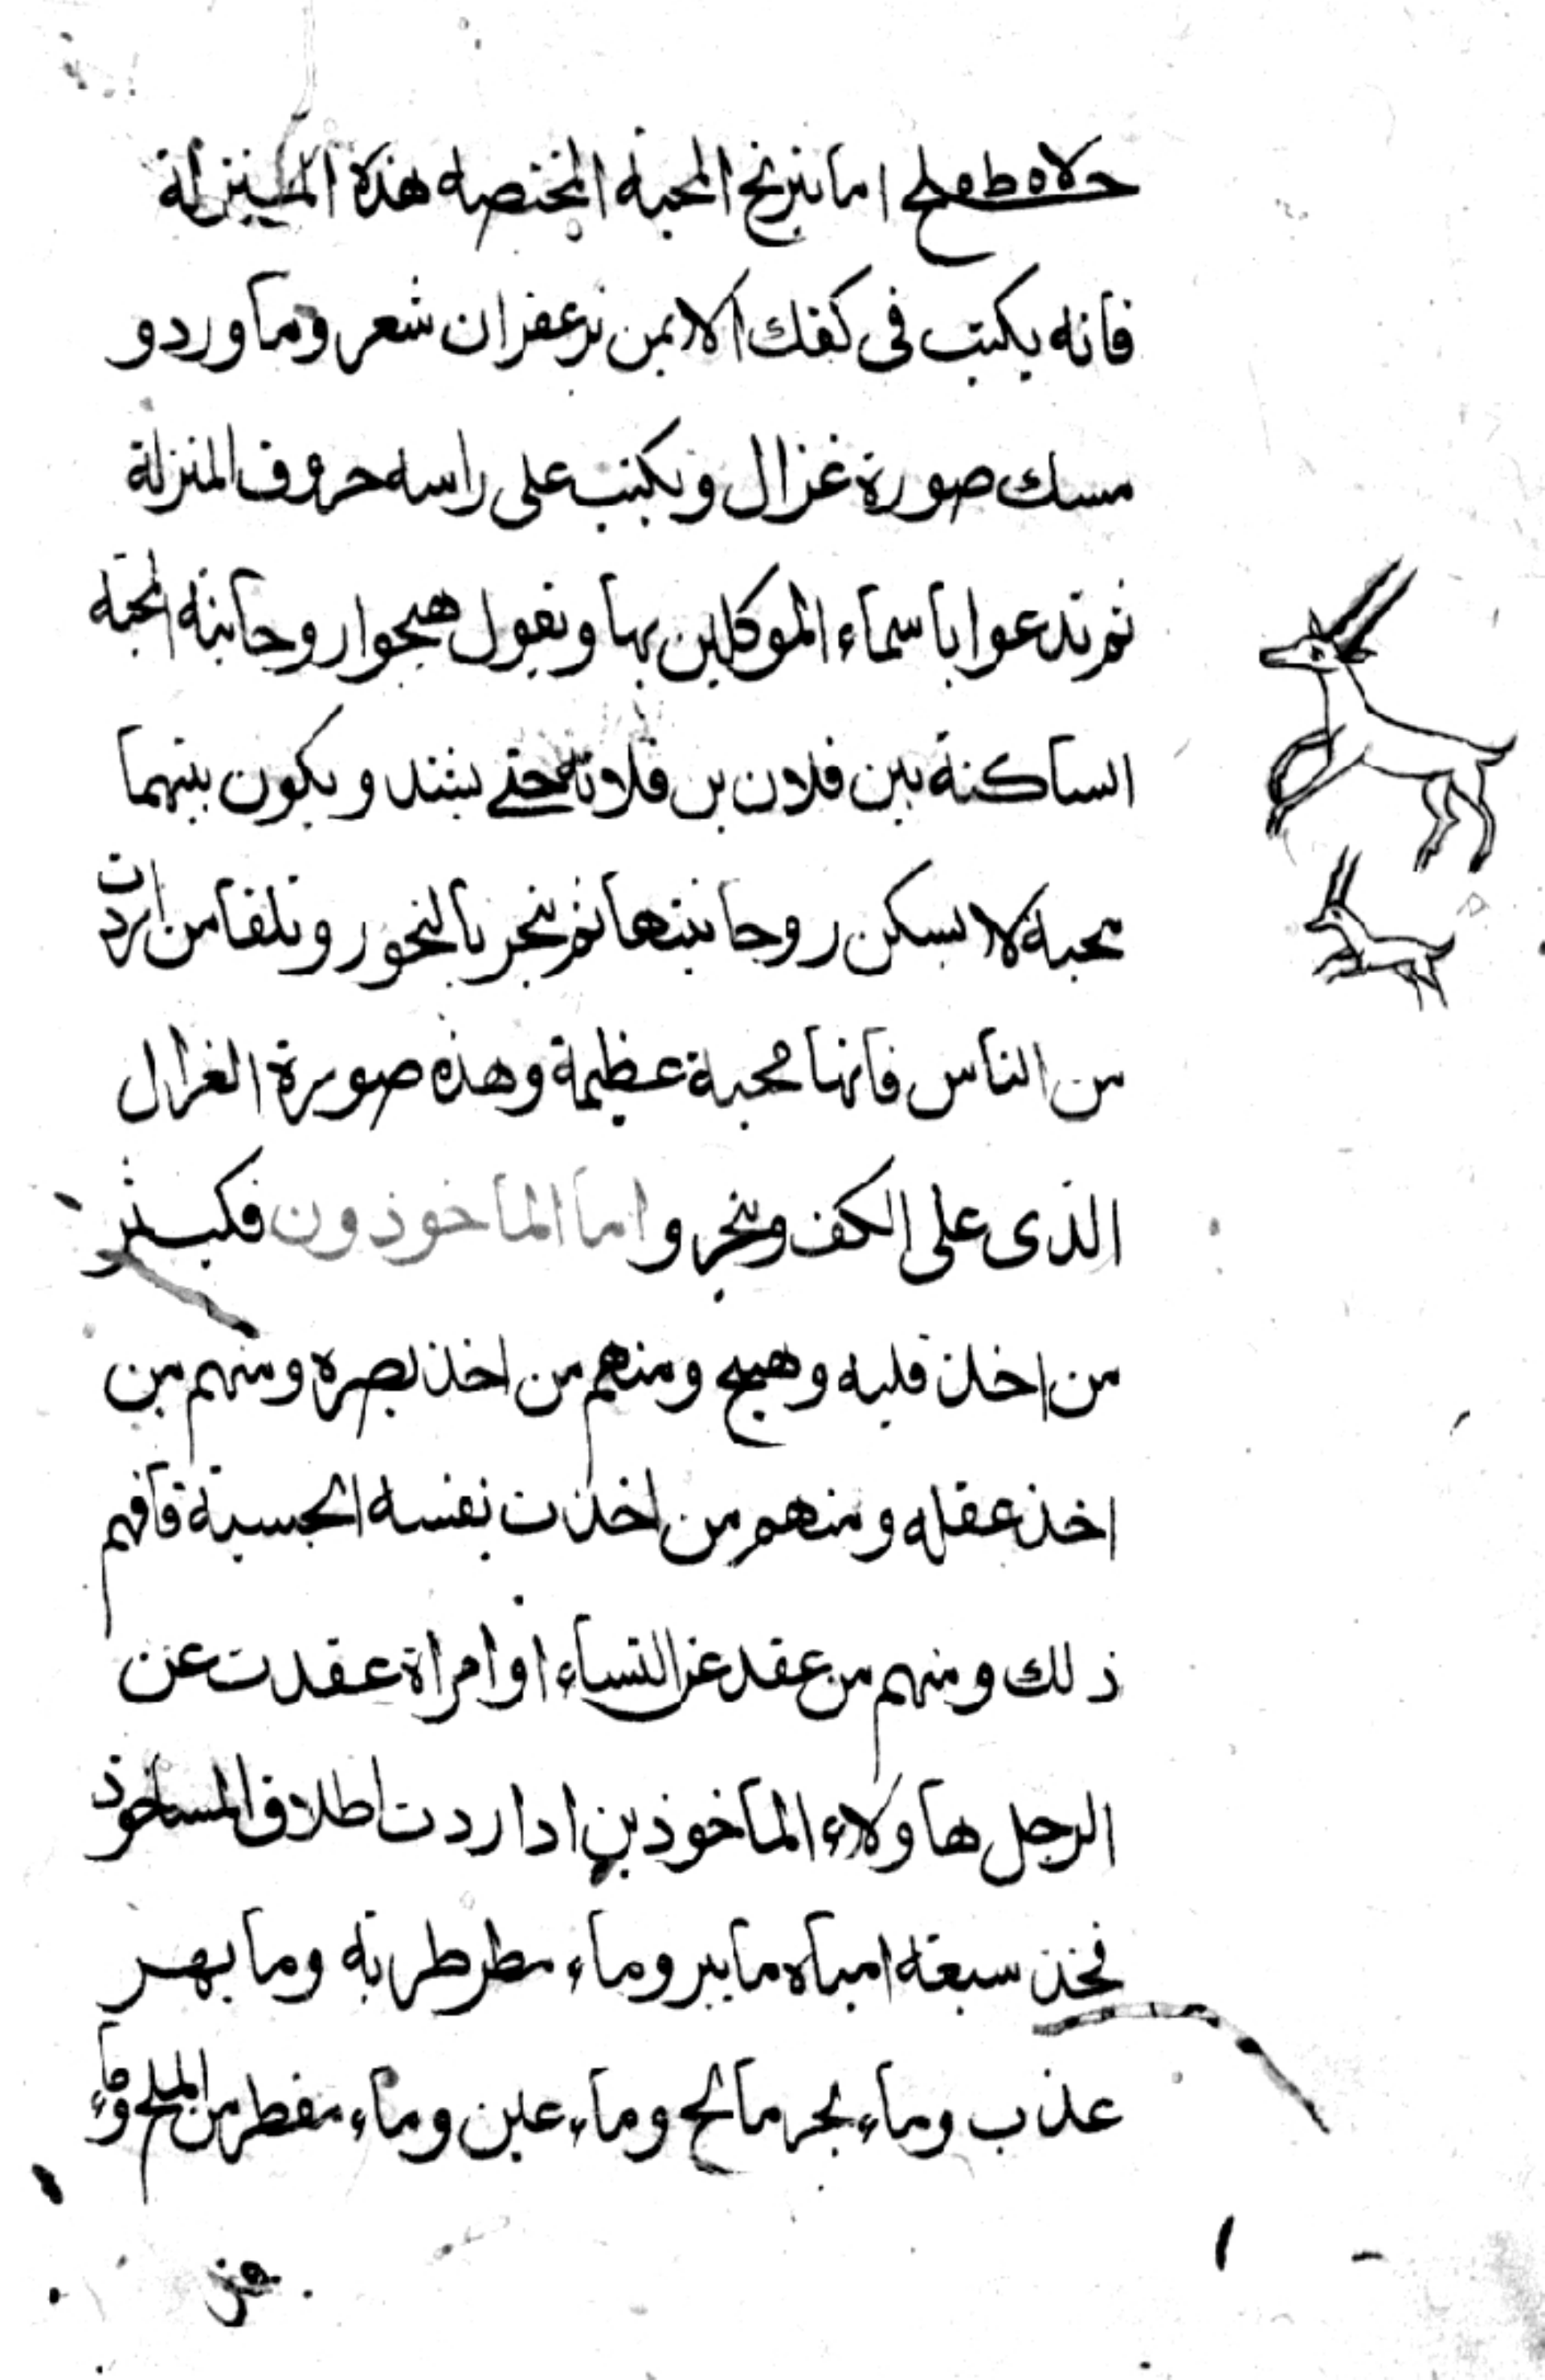 حلاه طهلح اما نيرنج المحبة المختصه هذه المنزلة
فانه يكتب في كفك الايمن زعفران شعر وما ورد و
مسك صورة غزال ويكتب على راسه حروف المنزلة
ثم تدعوا باسماء الموكلين بها وتقول هيجوا روحانية المحبة
الساكنة بين فلان بن فلانه حتى يشتد ويكون بينهما
محبة لا يسكن روحانيتها ثم تبخر بالبخور وتلقا من اردت
من الناس فانها محبة عظيمة وهذه صورة الغزال
الذى على الكف ويبخر واما الماخوذون فكثير
من اخذ قلبه وهيج ومنهم من اخذ بصره ومنهم من
اخذ عقله ومنهم من اخذت نفسه الحسية فافهم
ذلك ومنهم من عقد عن النساء او امراة عقدت عن
الرجل هاولاء الماخوذين ادا اردت اطلاق الماخوذ
فخذ سبعة امياه ما بير وماء مطر طرية وما نهر
عذب وماء بحر مالح وماء عين وماء مقطر من الملح وماء